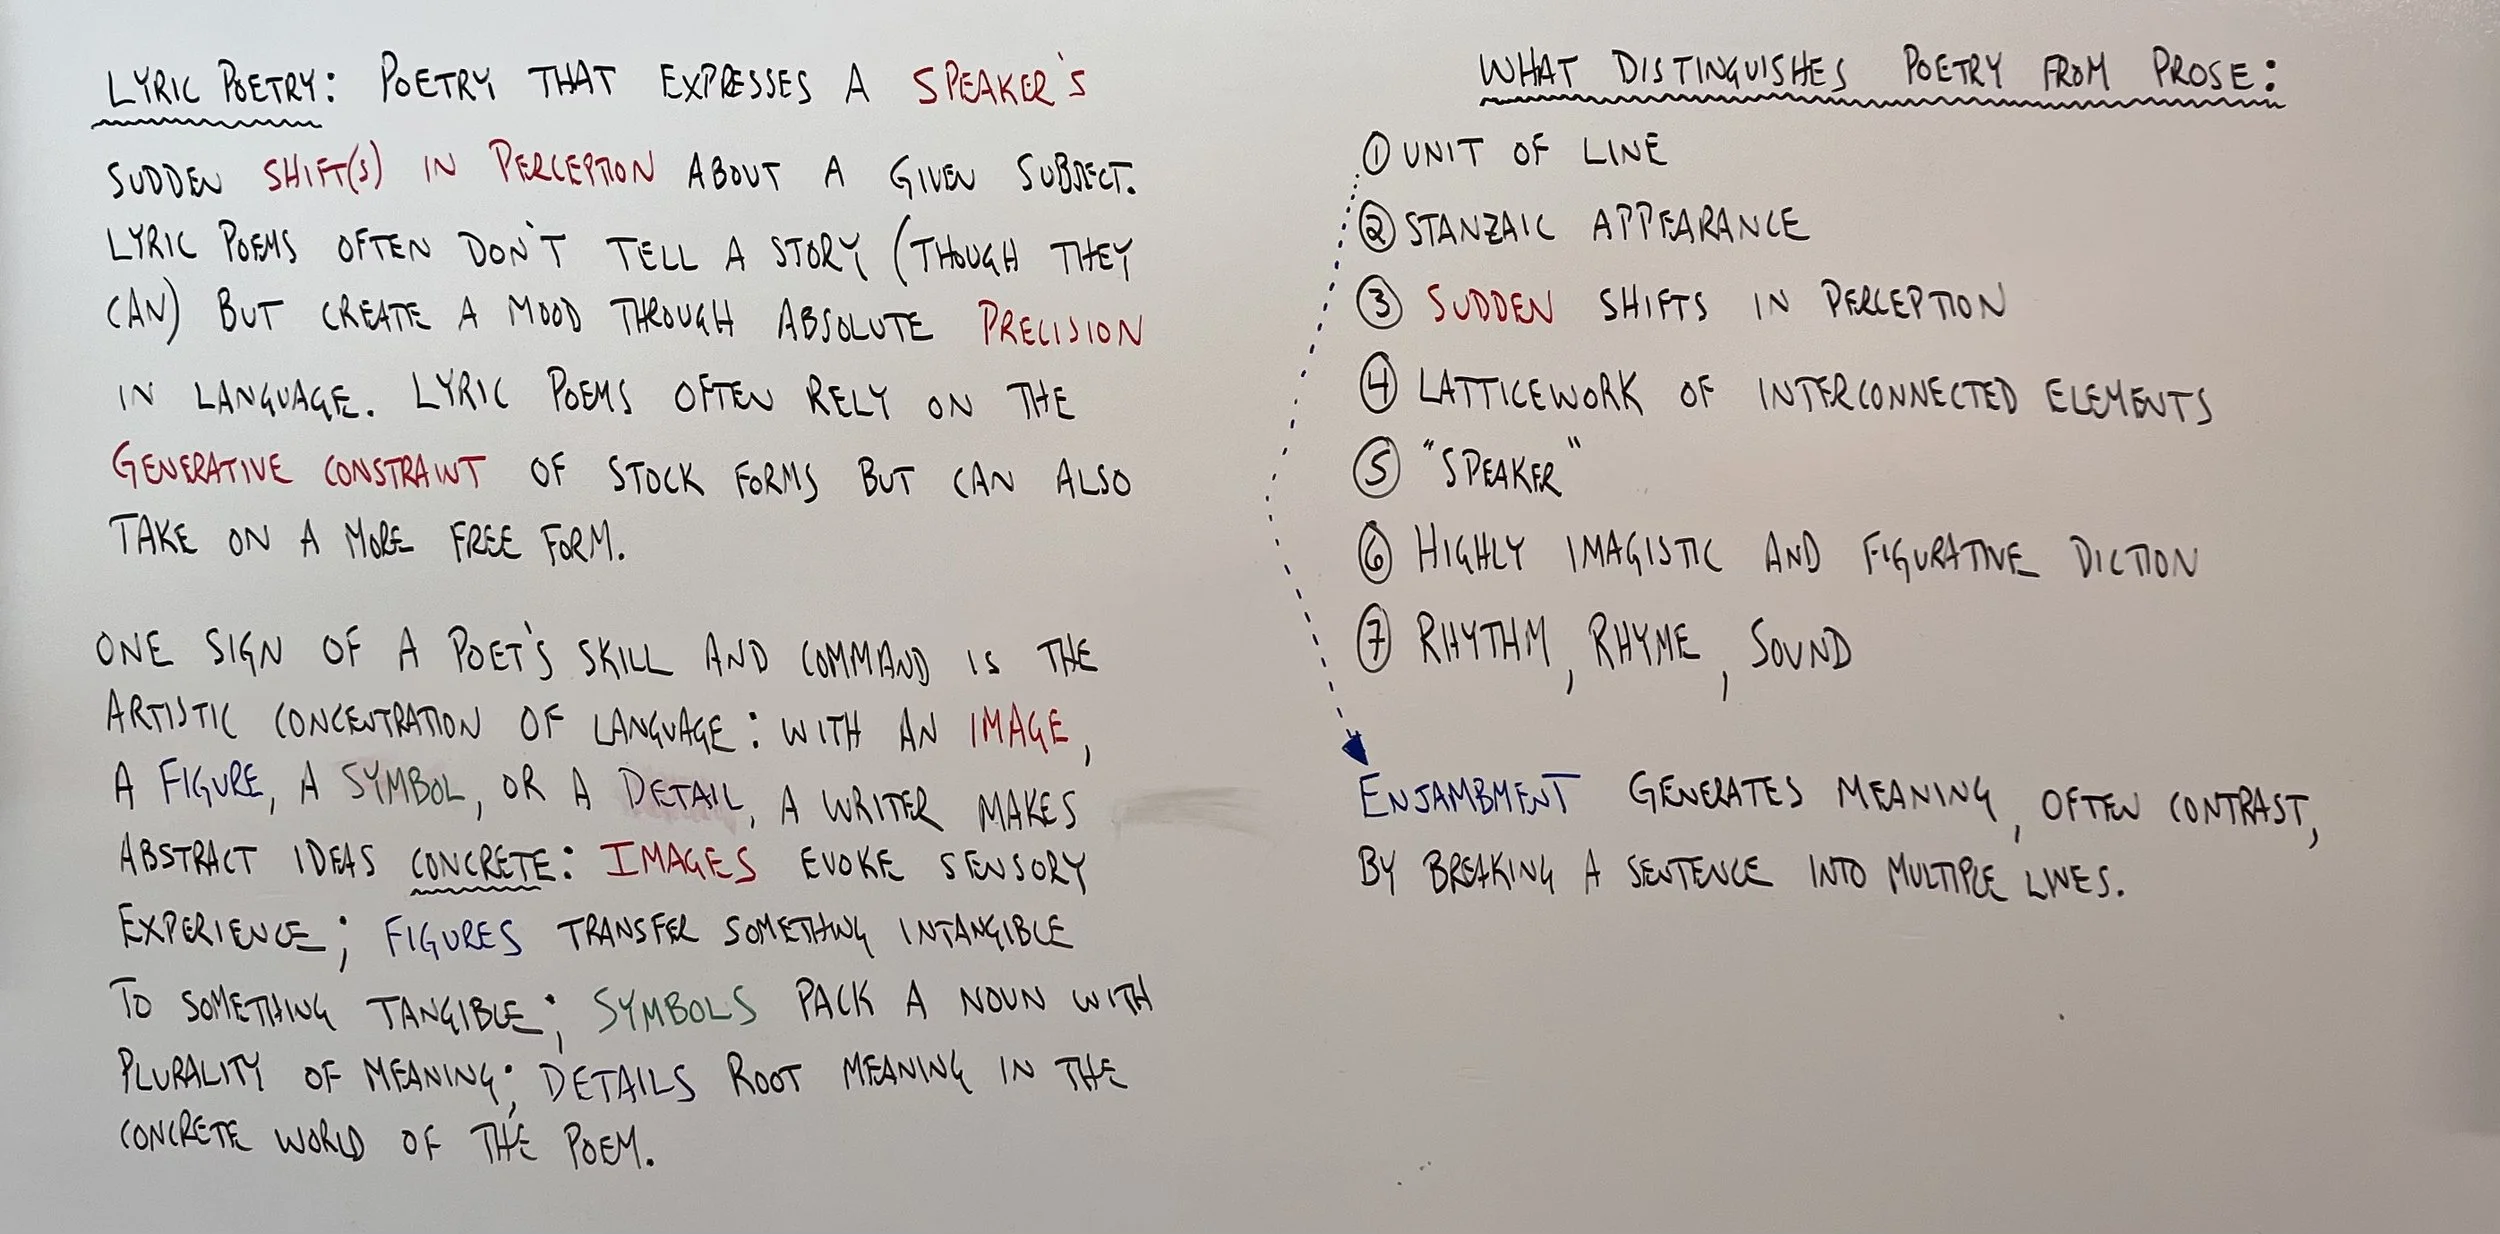 LYRIC POETRY: POETRY THAT EXPRESSES A SPEAKER'S
SUDDEN SHIFT(S) IN PERCEPTION ABOUT A GIVEN SUBJECT.
LYRIC POEMS OFTEN DON'T TELL A STORY (THOUGH THEY
CAN) BUT CREATE A MOOD THROUGH ABSOLUTE PRECISION
IN LANGUAGE. LYRIC POEMS OFTEN RELY ON THE
GENERATIVE CONSTRAINT OF STOCK FORMS BUT CAN ALSO
TAKE ON A MORE FREE FORM.
ONE SIGN OF A POET'S SKILL AND COMMAND IS THE
ARTISTIC CONCENTRATION OF LANGUAGE: WITH AN IMAGE,
A FIGURE, A SYMBOL, OR A DETAIL, A WRITER MAKES
ABSTRACT IDEAS CONCRETE: IMAGES EVOKE SENSORY
EXPERIENCE; FIGURES TRANSFER SOMETHING INTANGIBLE
TO SOMETHING TANGIBLE; SYMBOLS PACK A NOUN WITH
PLURALITY OF MEANING; DETAILS ROOT MEANING IN THE
CONCRETE WORLD OF THE POEM.
WHAT DISTINGUISHES POETRY FROM PROSE:
① UNIT OF LINE
② STANZAIC APPEARANCE
③ SUDDEN SHIFTS IN PERCEPTION
④ LATTICEWORK OF INTERCONNECTED ELEMENTS
⑤ "SPEAKER"
⑥ HIGHLY IMAGISTIC AND FIGURATIVE DICTION
⑦ RHYTHM, RHYME, SOUND
ENJAMBMENT GENERATES MEANING, OFTEN CONTRAST,
BY BREAKING A SENTENCE INTO MULTIPLE LINES.